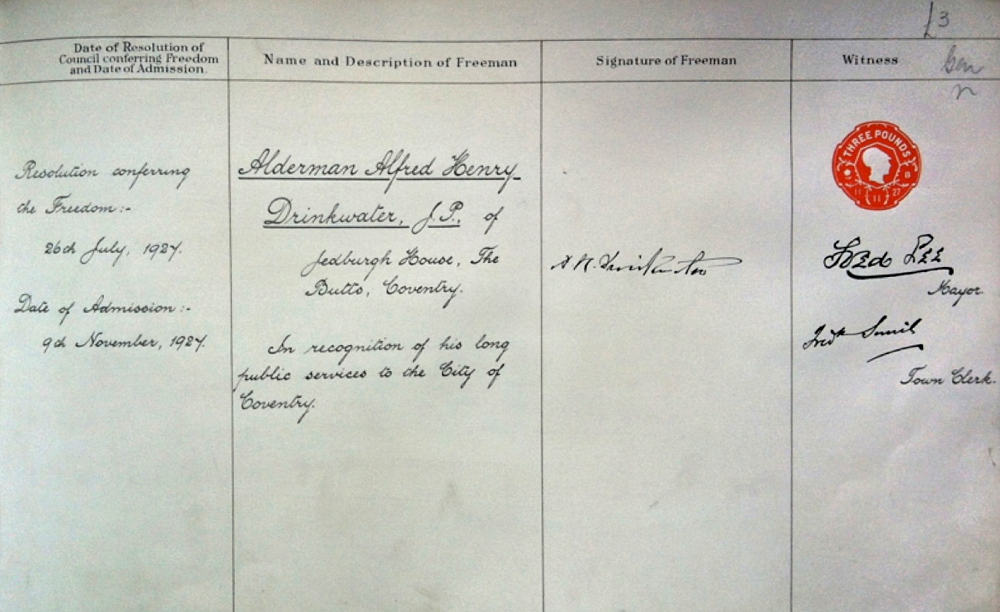 £3
Date of Resolution of
Council conferring Freedom
and Date of Admission.
Name and Description of Freeman
Signature of Freeman
Witness
Resolution conferring
the Freedom:-
26th July, 1927.
Date of Admission:-
9th November, 1927.
Alderman Alfred Henry
Drinkwater, J.P., of
Jedburgh House, The
Butts, Coventry.
In recognition of his long
public services to the City of
Coventry.
A H. Drinkwater
THREE POUNDS
11 11 27
Fred Lee
Mayor.
Fredk Smith
Town Clerk.